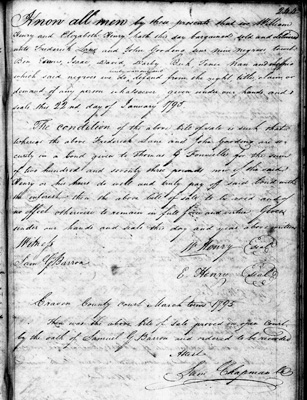 244
Know all men by these presents that we William
Henry and Elizabeth Henry hath this day bargained sold and delivered
unto Frederick Lane and John Gooding sons nine negroes
Ben Esaw, Isaac David Darby Buck Tener Nan and
which said negroes we do defend from the right title claim or
demand of any person whatsoever given under our hands and
seals this 22nd day of January 1795
The condition of the above bill of sale is such that
whereas the above Frederick Lane and John Gooding are se-
curity on a bond given to Thomas G Fonville for the sum
of two hundred and seventy three pounds now if the said
Henry or his heirs do well and truly pay off said Bond with
the interest then the above bill of sale to be void and of
no effect otherwise to remain in full force and virtue Given
under our hands and seals this day and year above written
Witness
Wm Henry Seal
Sam G Barron
E. Henry Seal
Craven County Court March term 1795
Then was the above bill of sale proved in open Court
by the oath of Samuel G Barron and ordered to be recorded
Attest
Sam Chapman Ck